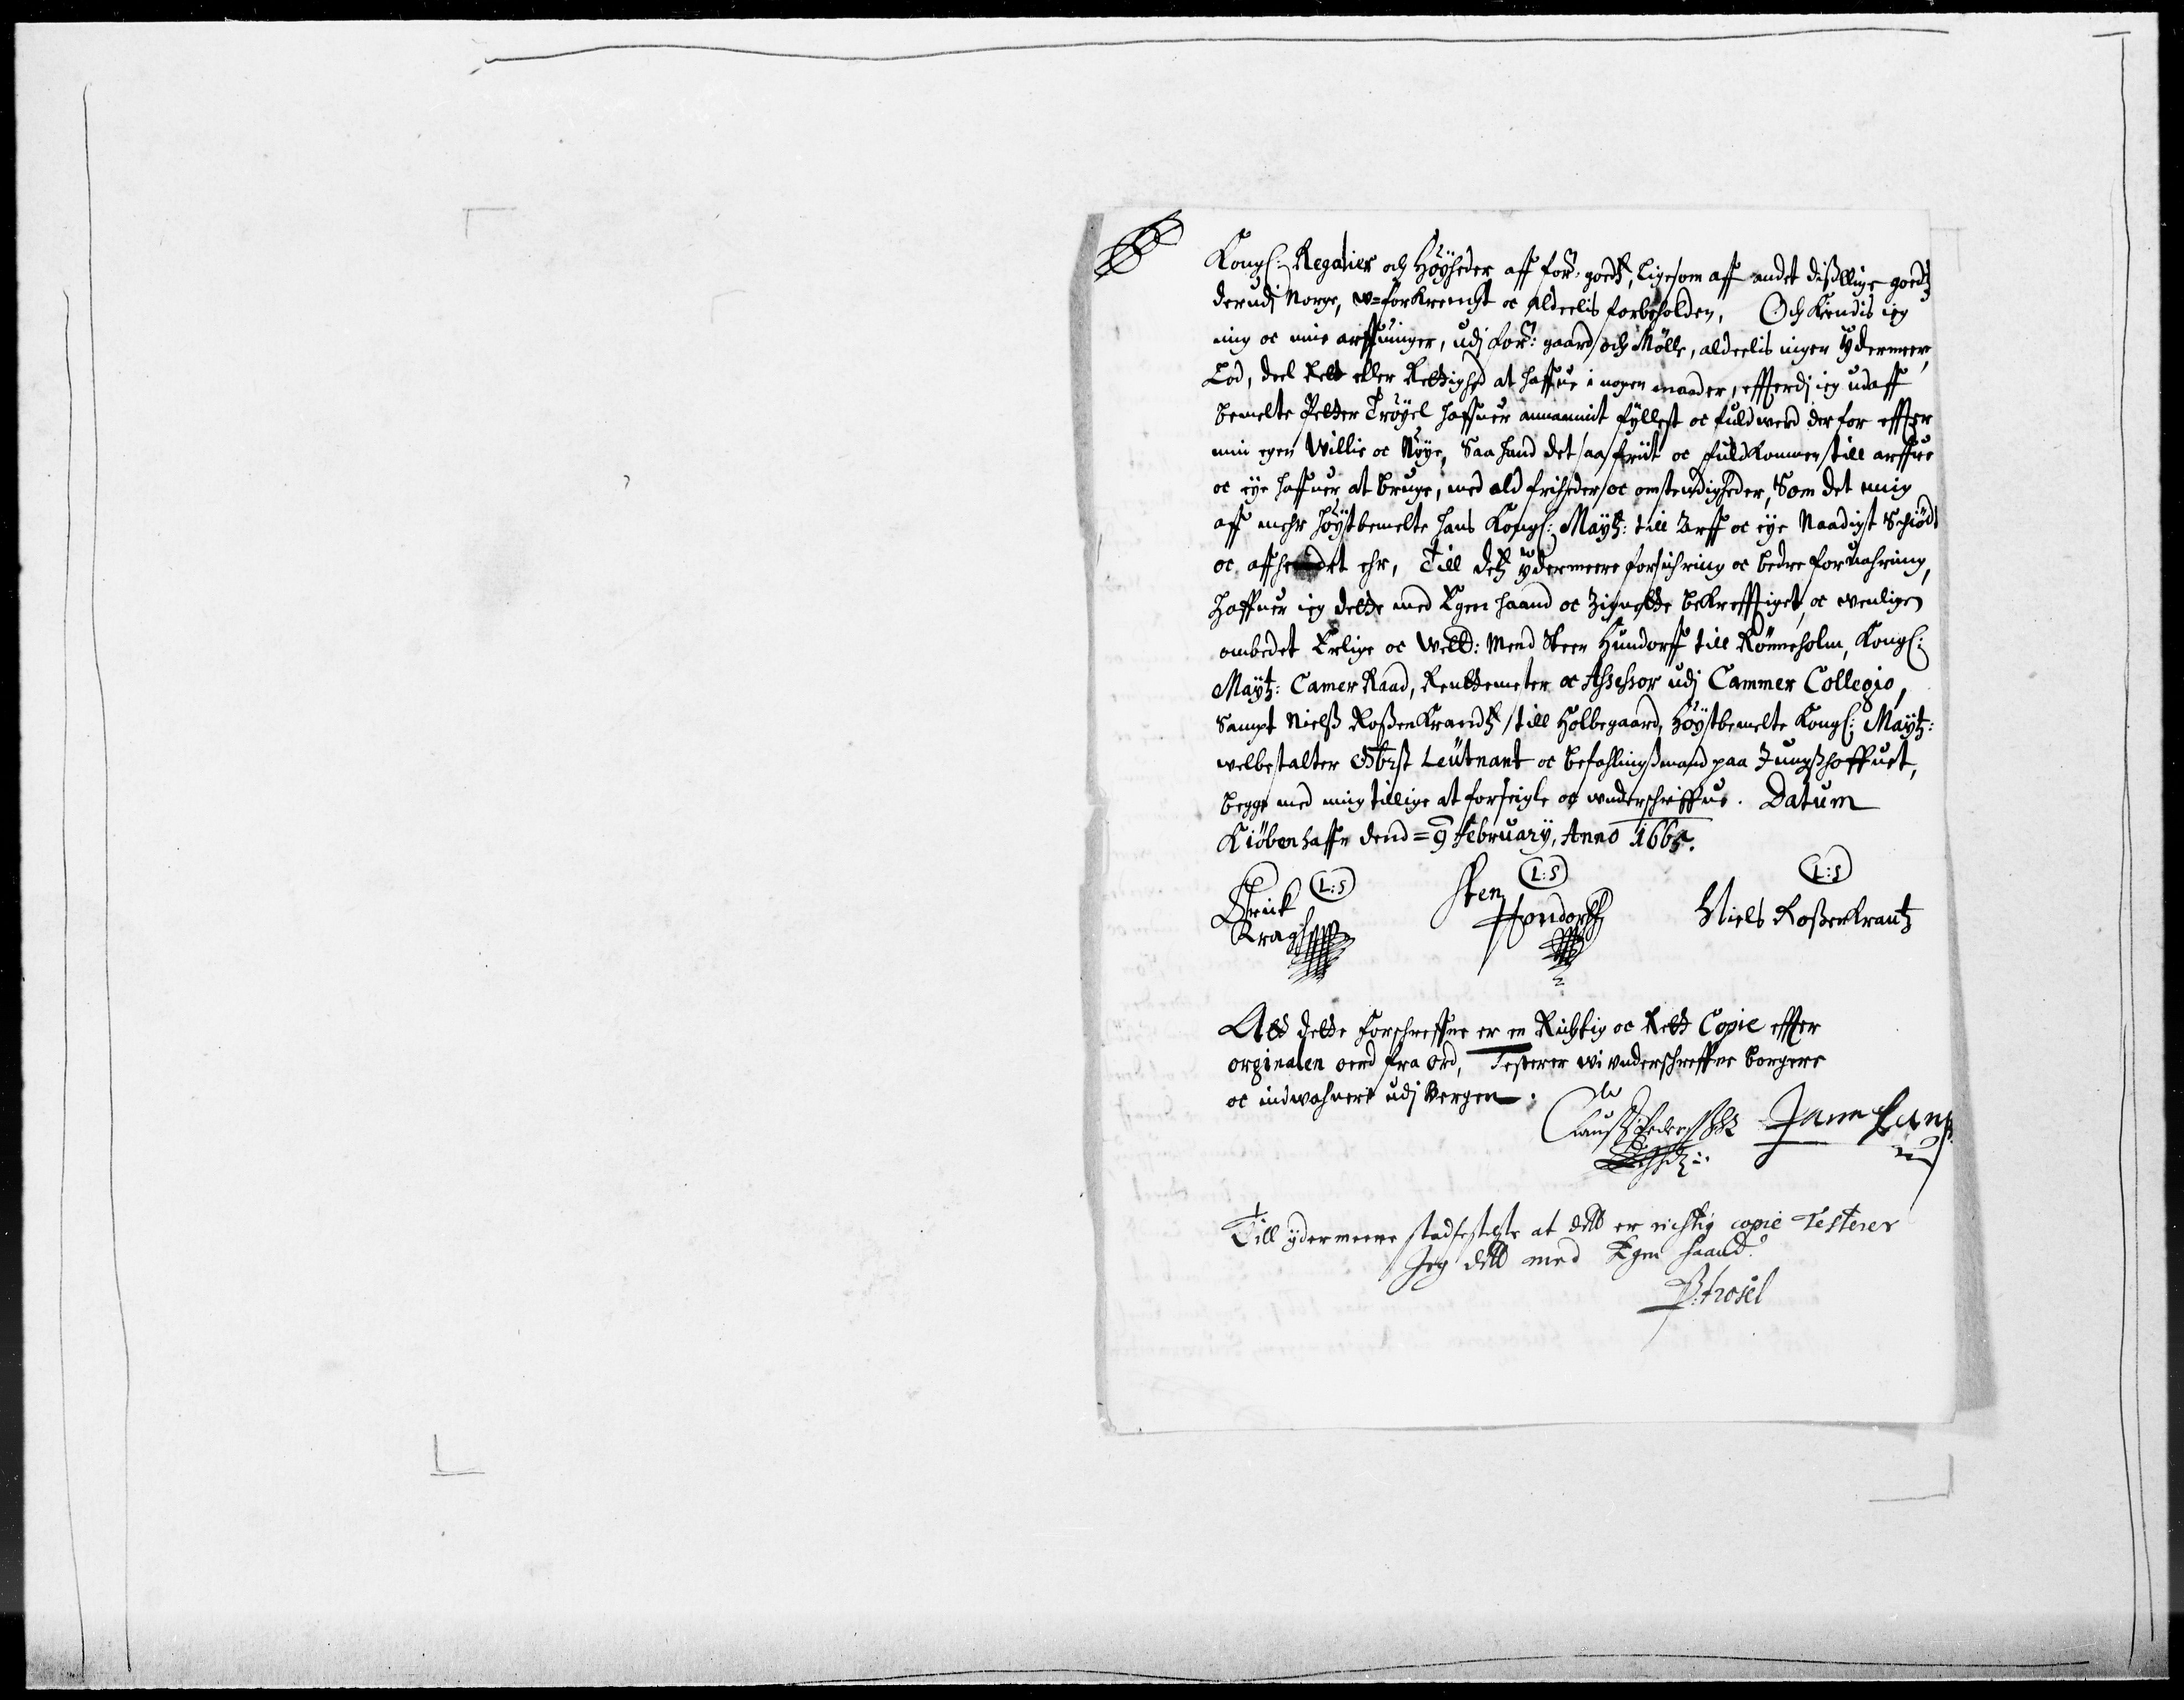 Kongl: Regalier och Höyheder aff for: goedtz, ligesom aff andet dissllige goedtz
der udj Norge, w=forkrencht oc aldeelis forbeholden, Och Kiendis ieg
mig oc mine arffuinger, udj for: gaard och Mölle, aldeelis ingen ydermeere
Lod, deel Rett eller Rettighed at haffue i nogen maader, effterdj ieg udaff
bemelte Petter Tröyel haffuer annammit fyllest oc fuld werd der for effter
min egen Willie oc Nöye, Saa hand det saa friit oc fuldkommen till arffue
oc eye haffuer at bruge, med ald friheder oc omstendigheder, Som det mig
aff mehr höystbemelte hans Kongl: Maytz: till Arff oc eye Naadigst Schiödt
oc affhendet ehr, Till detz ydermeere forsichring oc bedre foruahring,
haffuer ieg dette med Egen haand oc Zignette bekrefftiget, oc wenligen
ombedet Erlige oc Welb: Mend Steen Hundorff till Rönneholm, Kongl:
Maytz: Camer Raad, Rentemeter oc Assessor udj Cammer Collegio,
Sampt Nielss Rossenkrandtz till Holbegaard, Höystbemelte Kongl: Maytz:
welbestalter Obrst Leutnant oc befahlingssmand paa Jungsshoffuet,
begge med mig tillige at forseigle oc underschriffue. Datum
Kiöbenhaffn dend = 9 February, Anno 1665.
L:S L:S L:S
Erick Sten Niels Rossenkrantz
Kragh Hondorff
Att dette forschreffne er en Richtig oc Rett Copie effter
orginalen oerd fra ord, Testerer wi underschreffne borgere
oc indwahnere udj Bergen.
Clauss Jann
Till ydermeere stadfestelse at dett er richtig copie Testerer
Jeg dett med Egen haand.
P: trosel